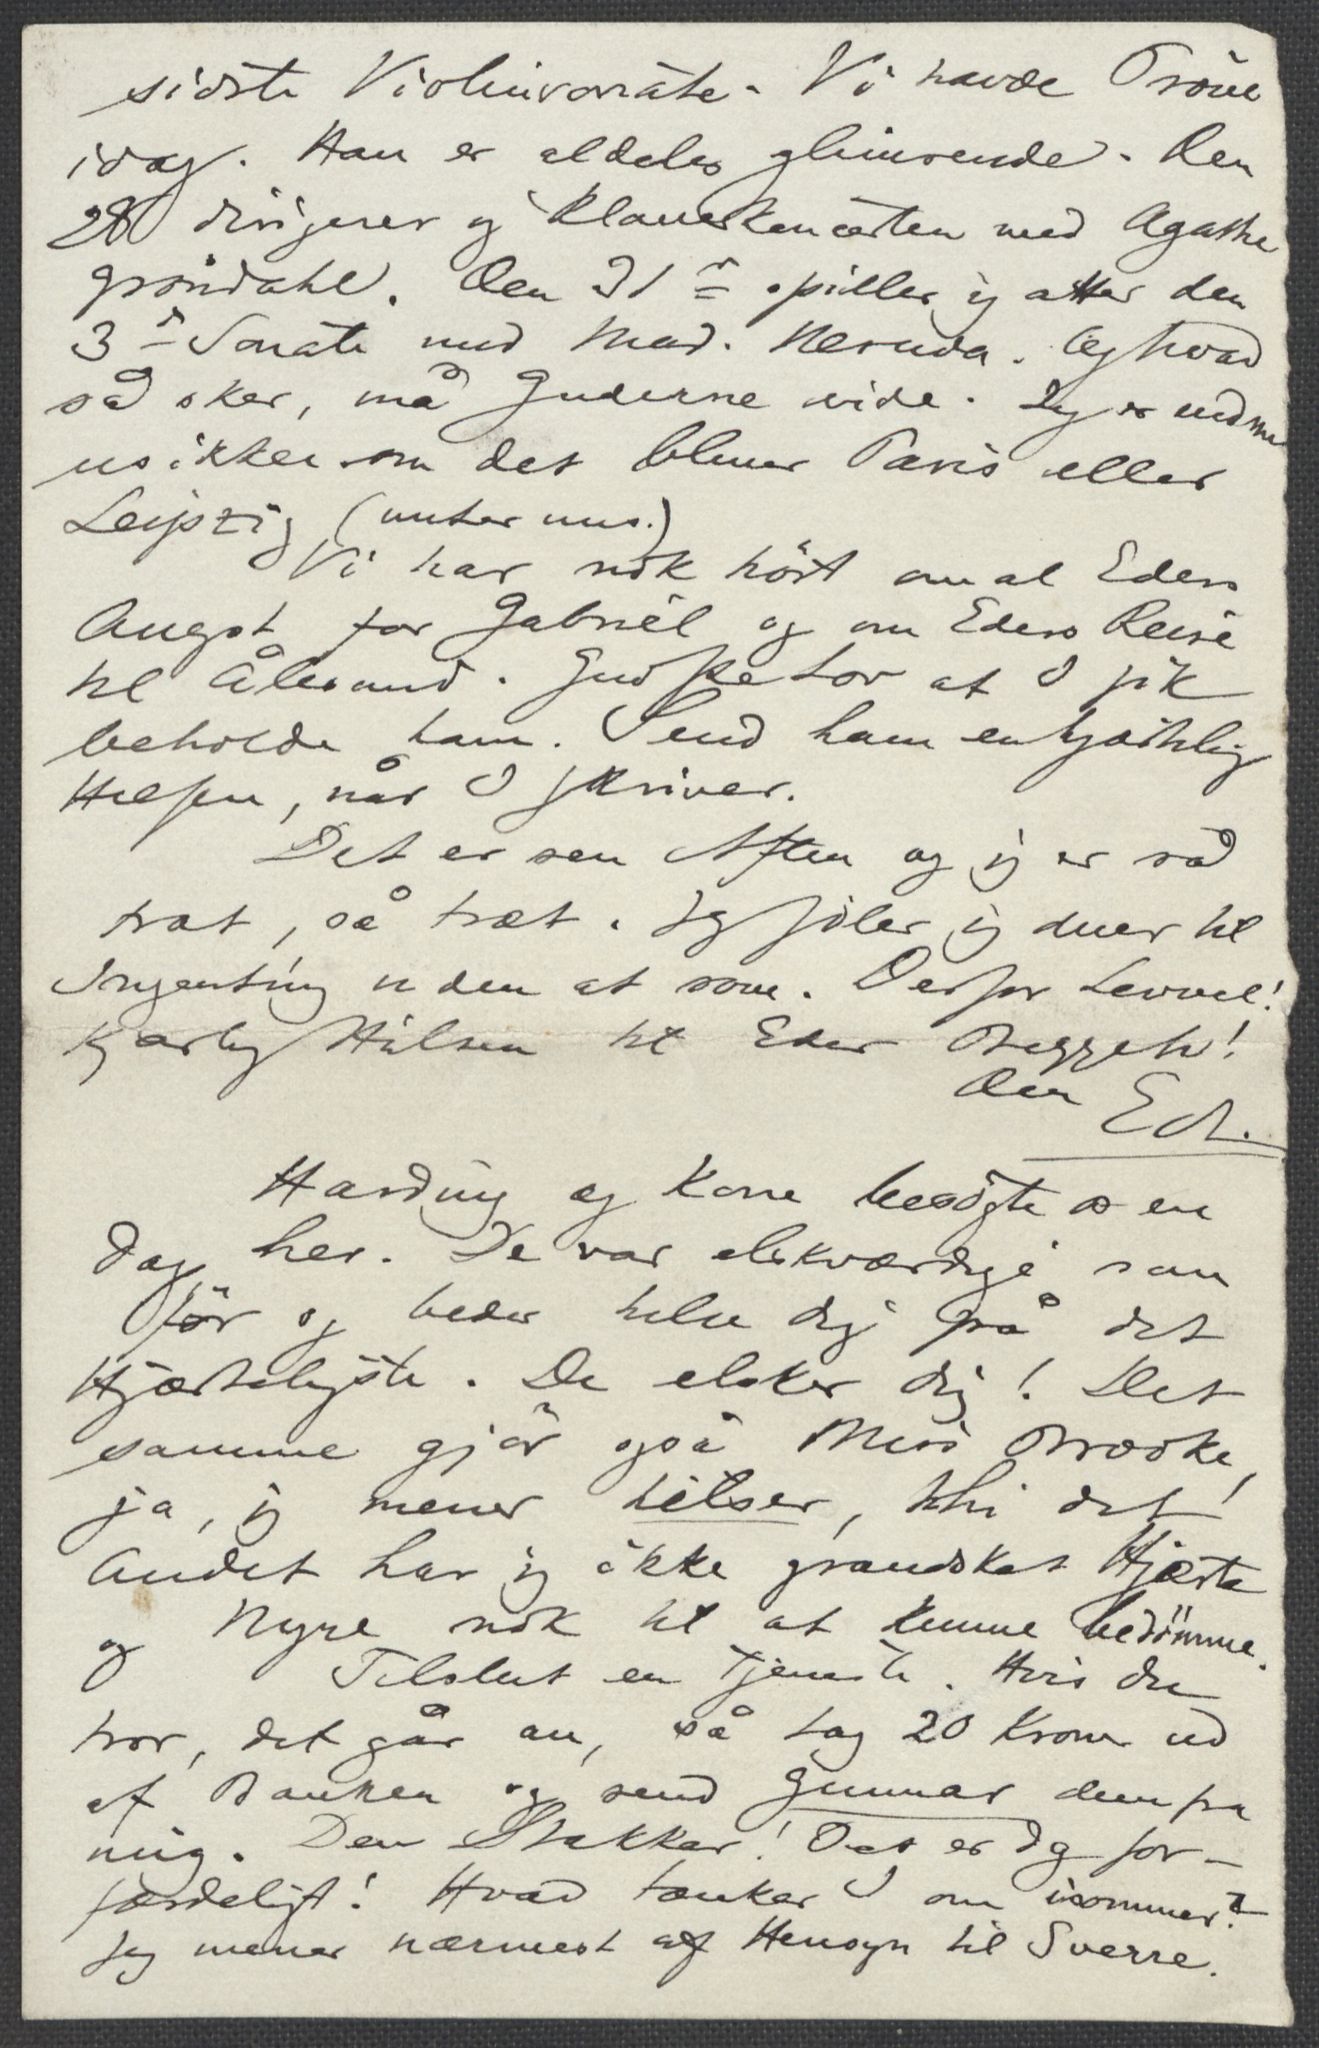 sidste Violinsonate. Vi havde Prøve
idag. Han er aldeles glimrende. Den
28 dirigerer jeg Klaverkoncerten med Agathe
Grøndahl. Den 31te spiller jeg atter den
3die Sonate med Mad. Neruda. Og hvad
så sker, må Guderne vide. Jeg er endnu
usikker om det bliver Paris eller
Leipzig (unter uns.)
Vi har nok hört om al Eders
Angst for Gabriel og om Eders Reise
til Ålesund. Gud ske Lov at I fik
beholde ham. Send ham en hjærtelig
Hilsen, når I skriver.
Det er sen Aften og jeg er så
træt, så træt. Jeg föler jeg duer til
Ingenting uden at sove. Derfor Levvel!
Kjærlig Hilsen til Eder Begge to!
Din Ed.
Harding og Kone besögte os en
Dag her. De var elskværdige som
för og beder hilse dig på det
Hjærteligste. De elsker dig! Det
samme gjör også Miss Brooke,
ja, jeg mener hilser, thi det
Andet har jeg ikke grandsket Hjærte
og Nyre nok til at kunne bedömme.
Tilslut en Tjeneste. Hvis du
tror, det går an, så tag 20 Kroner ud
af Banken og send Gunnar dem fra
mig. Den Stakkar! Det er dog for-
færdeligt! Hvad tænker I om isommer?
Jeg mener nærmest af Hensyn til Sverre.